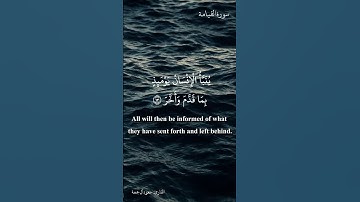 سورة القيامة
يُنَبَّأُ الْإِنسَانُ يَوْمَئِذٍ
بِمَا قَدَّمَ وَأَخَّرَ ١٣
All will then be informed of what
they have sent forth and left behind.